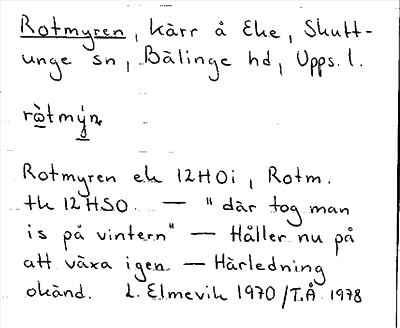 Rotmyren, kärr å Eke, Skutt-
unge sn, Bälinge hd, Upps. l.
ròtmýn
Rotmyren ek 12H0i, Rotm.
tk 12HSO. — "där tog man
is på vintern" — Håller nu på
att växa igen. — Härledning
okänd. L. Elmevik 1970/T.Å 1978